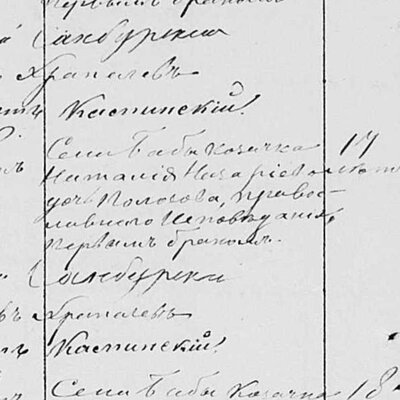 первымъ бракомъ
Самбурский
Храпалевъ
Каспинскій.
Села Бабы козачка 17
Наталія Назаріева лѣт
доч Полозова, правос-
лавнаго исповѣданія,
первымъ бракомъ.
Самбурски
Храпачевъ
Каспинскій.
Села Бабы козачка 18